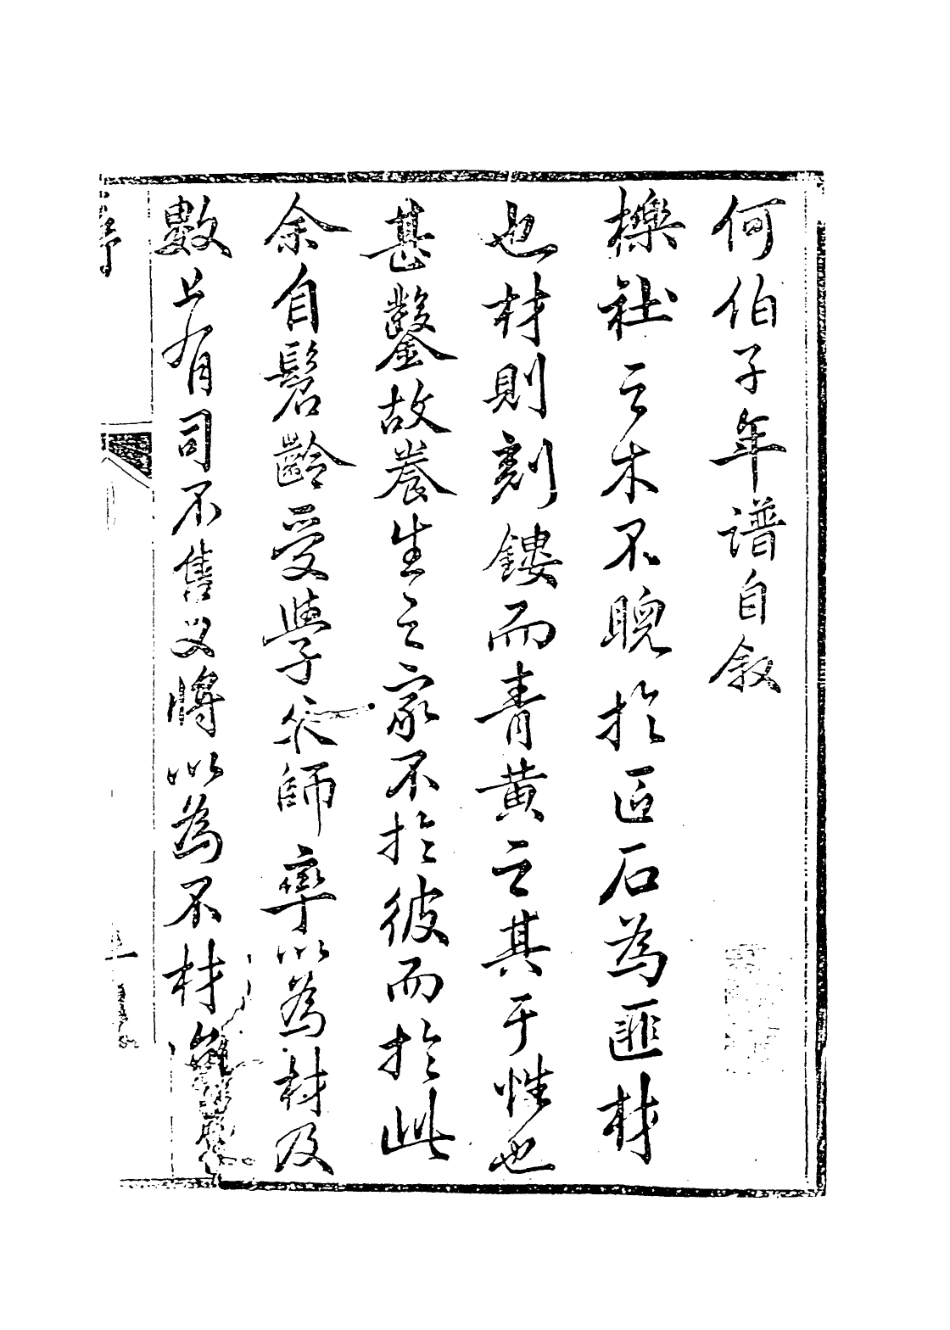 何伯子年譜自敘
櫟社之木不睨於匠石為匪材
也材則剞鏤而青黃之其于性也
甚鑿故養生之家不於彼而於此
余自髫齡受學父師率以為材及
數上有司不售又將以為不材
序